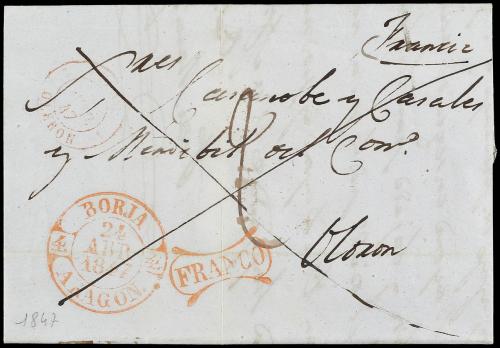 Francia
Sres
Casamobe y Casales
y Mendibil del Com.º
Oloron
BORJA
24
ABR
1847
ARAGON.
FRANCO
OLERON
1847